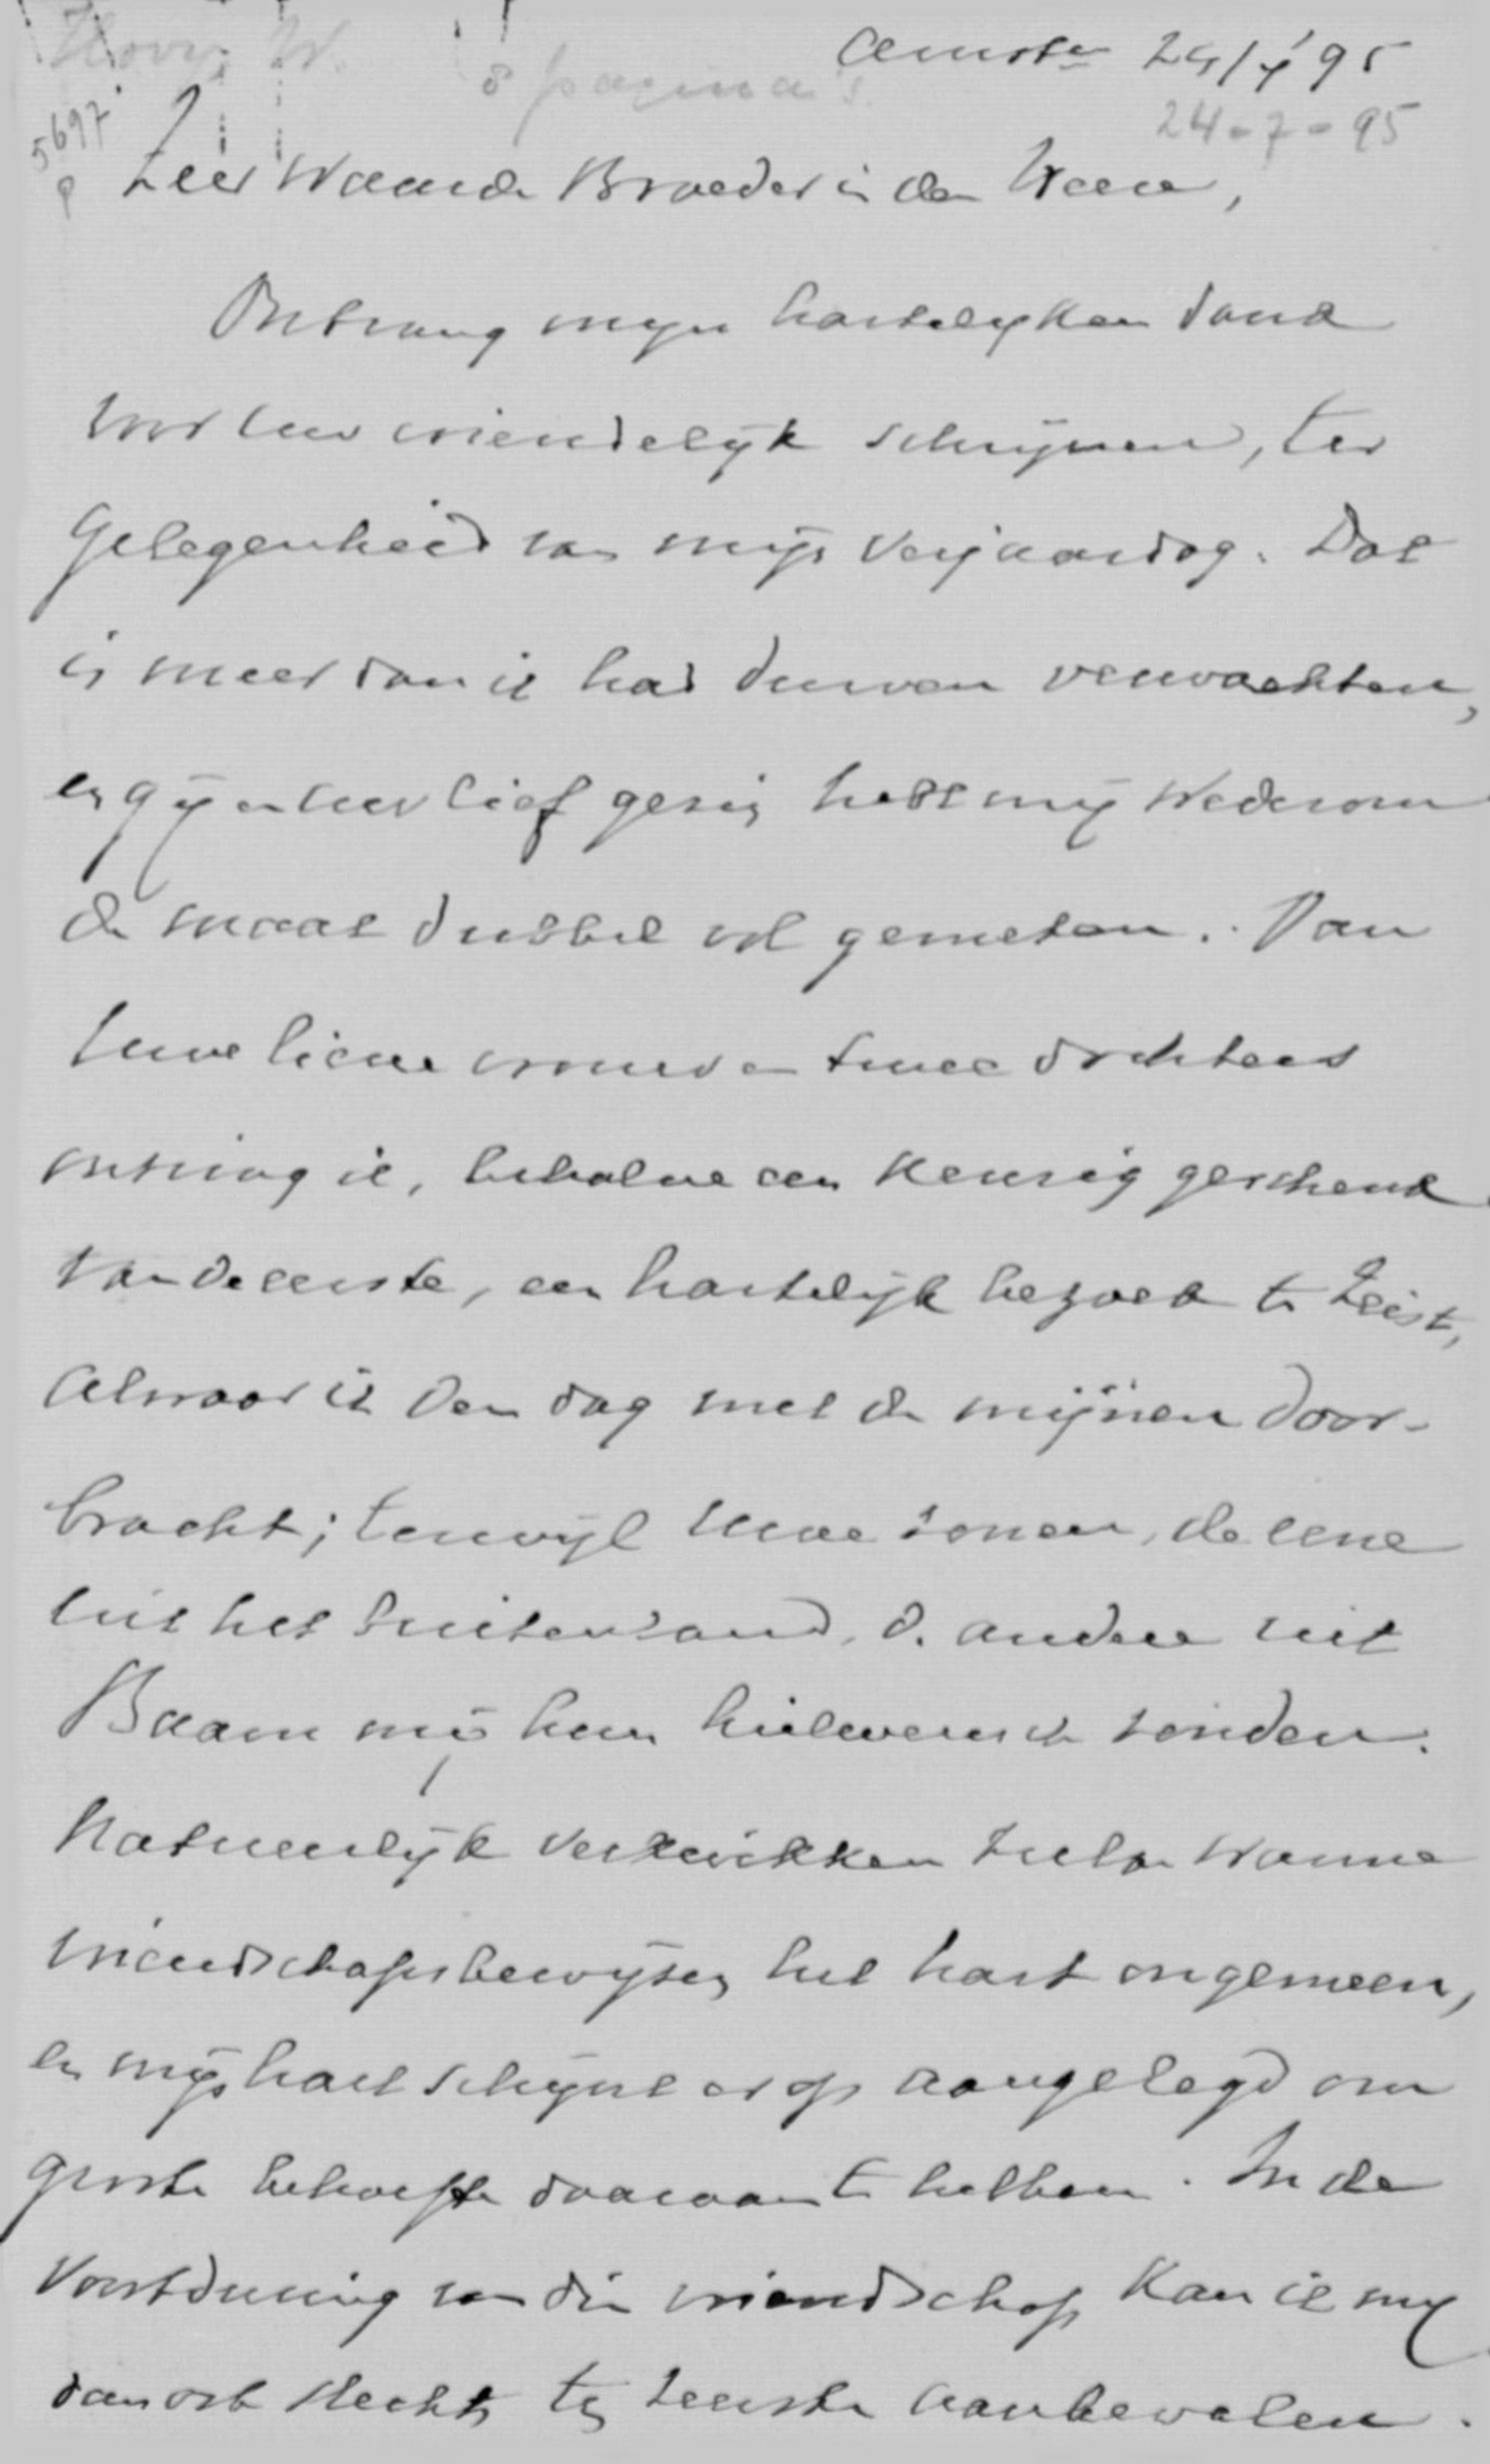 Hovy, W.
8 pagina's.
Amstm 24/7 '95
24-7-95
5697
Zeer Waarde Broeder in den Heere,
Ontvang mijn hartelijken dank
voor Uw vriendelijk schrijven, ter
gelegenheid van mijn verjaardag. Dat
is meer dan ik had durven verwachten,
en gij en Uw lief gezin hebt mij wederom
de maat dubbel vol gemeten. Van
Uwe lieve vrouw en twee dochters
ontving ik, behalve een keurig geschenk
van de eerste, een hartelijk bezoek te Zeist,
alwaar ik den dag met de mijnen door-
bracht; terwijl Uwe zonen, de eene
uit het buitenland, d. andere uit
Baarn mij hun heilwensch zonden.
Natuurlijk verkwikken zulke warme
vriendschapsbewijzen het hart ongemeen,
en mijn hart schijnt er op aangelegd om
groote behoefte daaraan te hebben. In de
voortduring van die vriendschap kan ik mij
dan ook slechts ten zeerste aanbevelen.